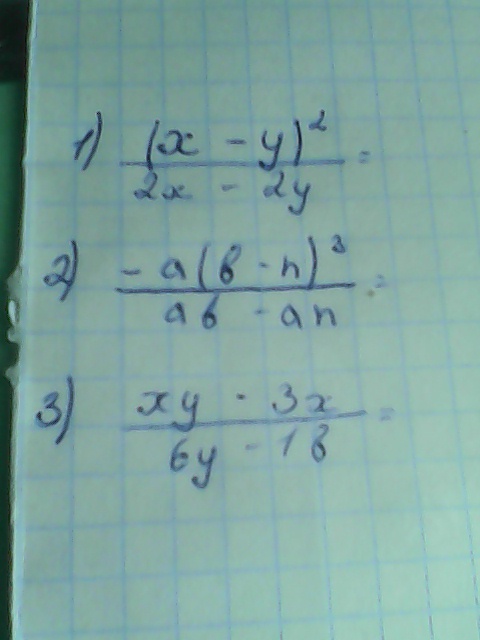 1) (x - y)²
2x - 2y =
2) - a(b - n)³
ab - an =
3) xy - 3x
6y - 18 =